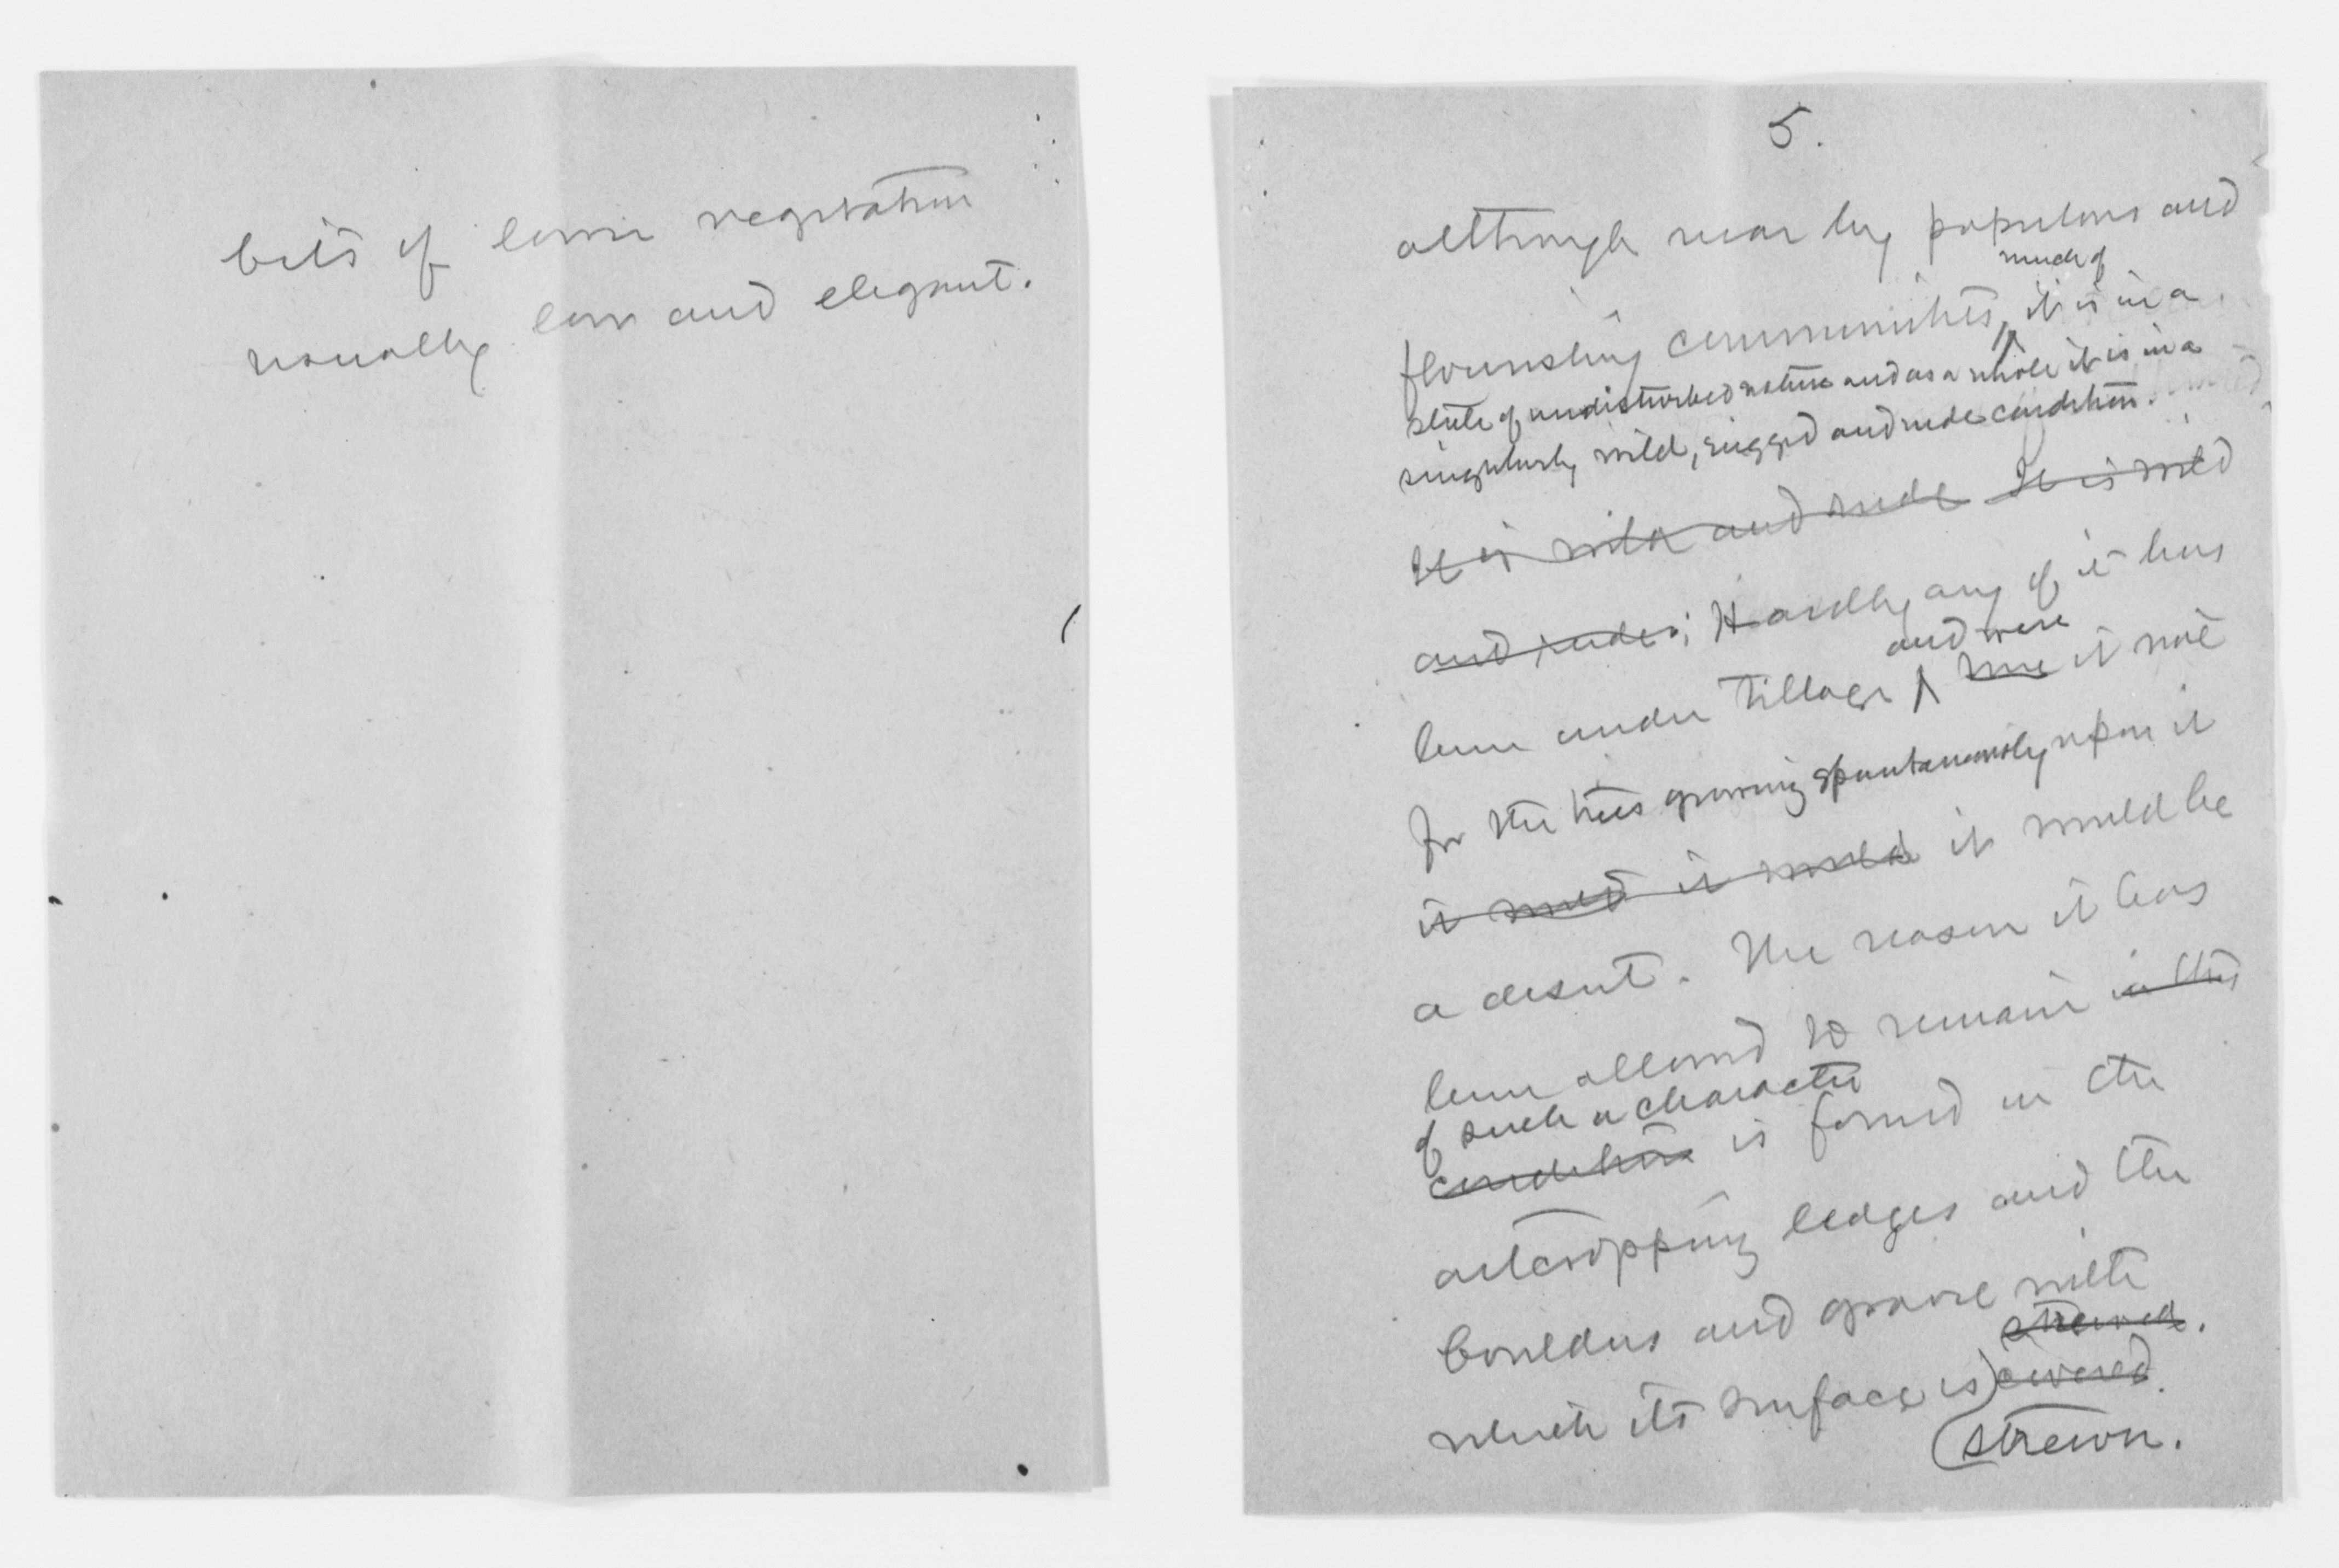 bits of low vegetation
usually low and elegant.
5.
although near by populous and
much of
flourishing communities, it is in a
state of undisturbed nature and as a whole it is in a
singularly wild, rugged and rude condition.
It is wild and rude It is wild
and rude; Hardly any of it has
and were
been under tillage it not
for the trees growing spontaneously upon it
it would it would be
a desert. The reason it has
been allowed to remain in this
of such a character
condition is found in the
outcropping ledges and the
boulders and gravel with
strewed.
which its surface is covered.
strewn.